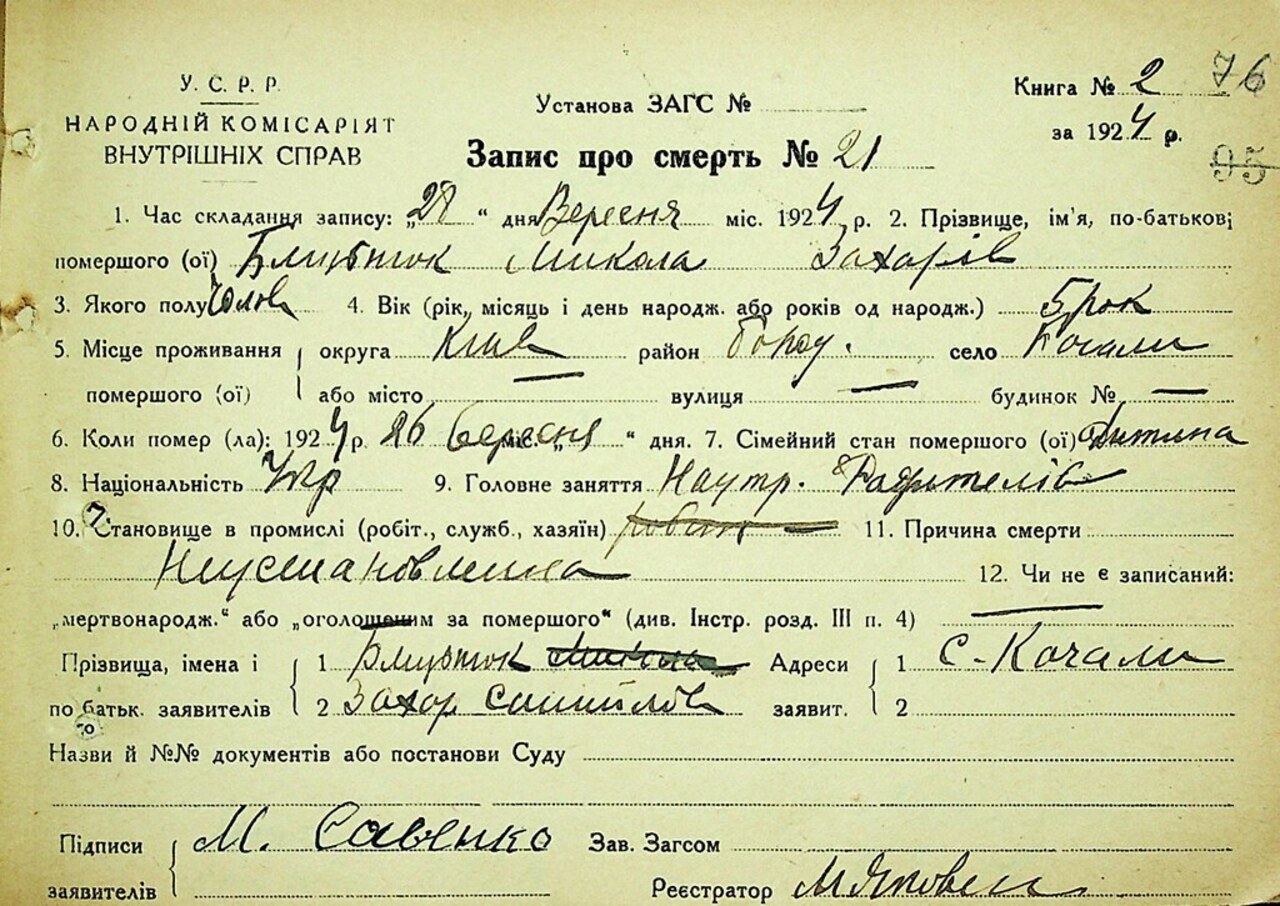 У. С. Р. Р.
НАРОДНІЙ КОМІСАРІЯТ
ВНУТРІШНІХ СПРАВ
Установа ЗАГС №
Книга № 2 76
за 1924 р.
95
Запис про смерть № 21
1. Час складання запису: „28 “ дня Вересня міс. 1924 р. 2. Прізвище, ім'я, по-батькові
помершого (ої) Микола Захарів
3. Якого полу Чолов 4. Вік (рік, місяць і день народж. або років од народж.) 5 рок
5. Місце проживання округа Київ район Город. село Кочали
помершого (ої) або місто — вулиця — будинок № —
6. Коли помер (ла): 1924 р. 26 Вересня міс. „ “ дня. 7. Сімейний стан помершого (ої) Дитина
8. Національність Укр 9. Головне заняття
10. Становище в промислі (робіт., служб., хазяїн) 11. Причина смерти
Неустановлина 12. Чи не є записаний:
„мертвонародж.“ або „оголошеним за помершого“ (див. Інстр. розд. III п. 4) —
Прізвища, імена і 1 Микола Адреси 1 с. Кочали
по батьк. заявителів 2 Захар Самійлов заявит. 2
Назви й №№ документів або постанови Суду
Підписи М. Савенко Зав. Загсом
заявителів Реєстратор М Яковен